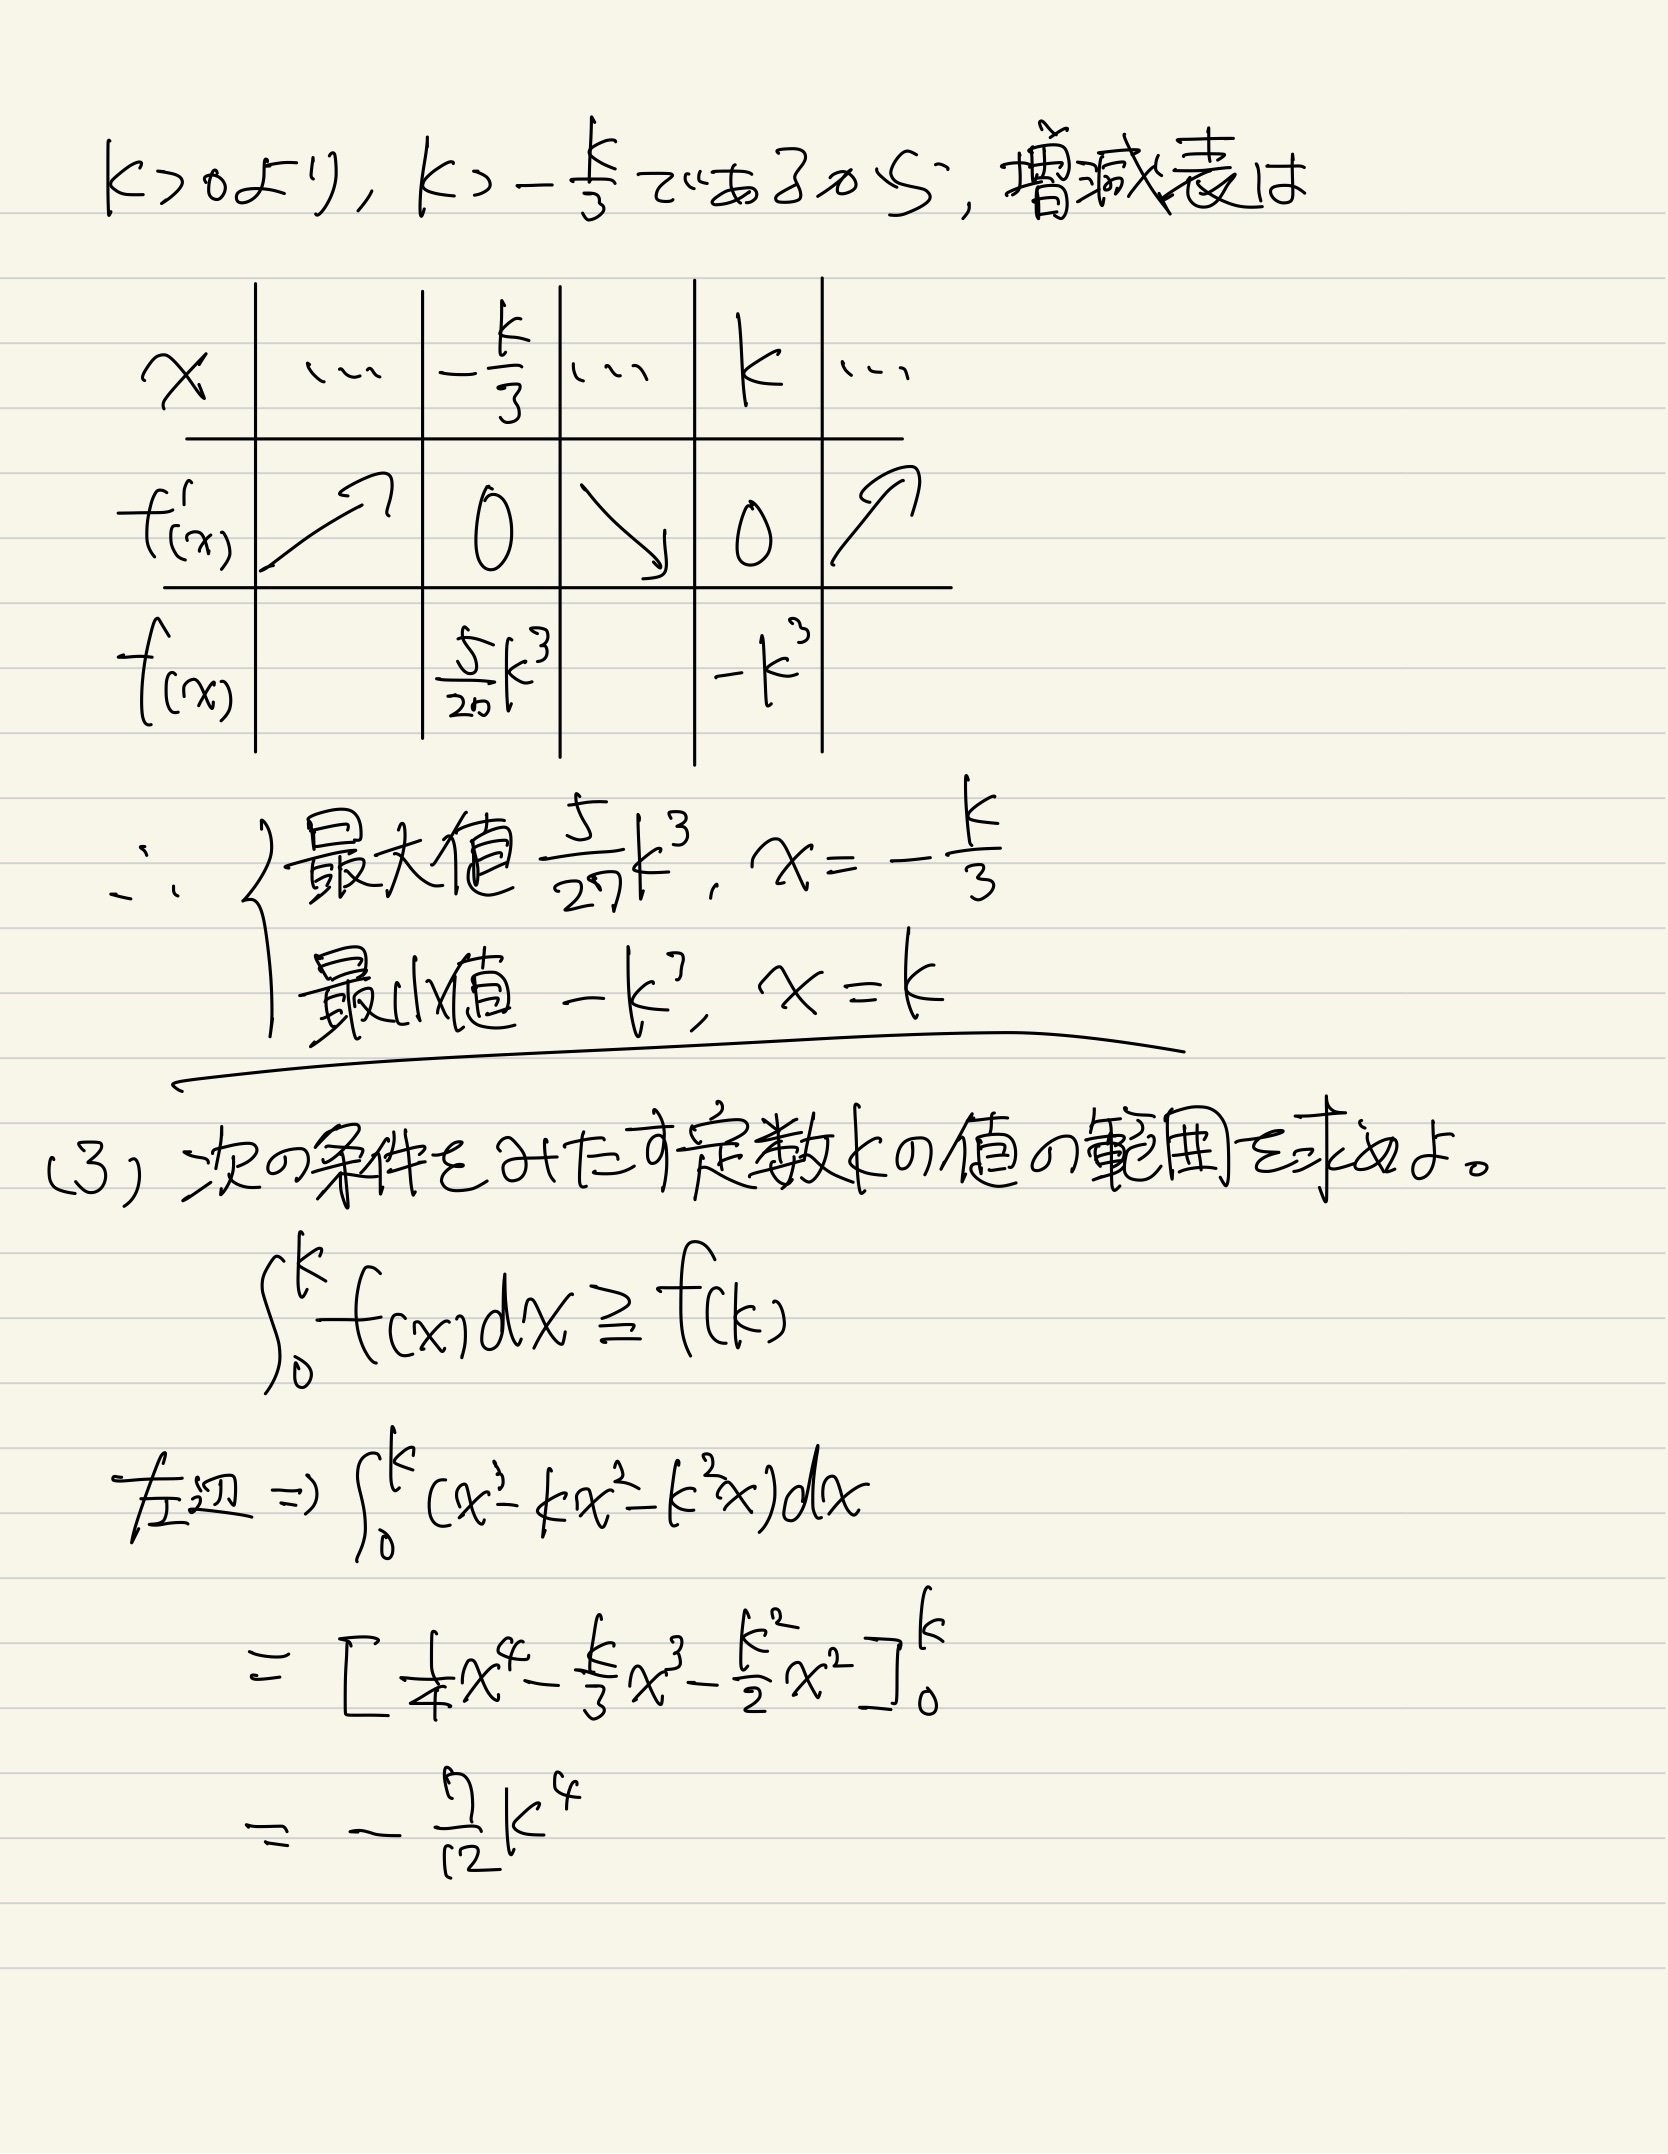 k>0より, k>-k/3であるから, 増減表は
x … -k/3 … k …
f'(x) ↗ 0 ↘ 0 ↗
f(x) 5/20 k³ -k³
∴ { 最大値 5/27 k³, x=-k/3
最小値 -k³, x=k
(3) 次の条件をみたす定数kの値の範囲を求めよ。
∫₀ᵏ f(x)dx ≧ f(k)
左辺 ⇒ ∫₀ᵏ (x³-kx²-k²x)dx
= [1/4 x⁴ - k/3 x³ - k²/2 x²]₀ᵏ
= - 7/12 k⁴